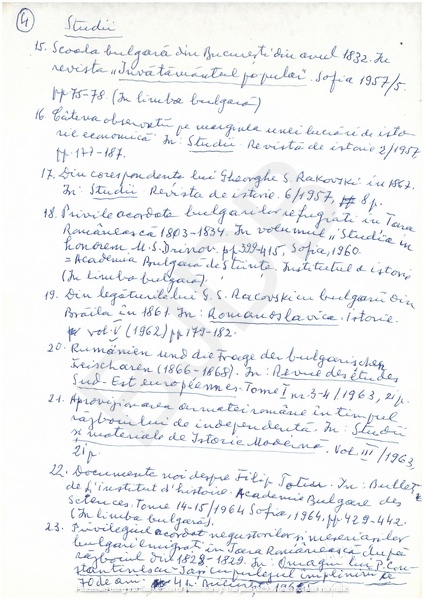 4
Studii
15. Scoala bulgară din București din anul 1832. In
revista „Învătământul popular". Sofia 1957/5.
pp 75-78. (In limba bulgară)
16. Câteva observatii pe marginea unei lucrări de isto-
rie economică. In: Studii. Revistă de istorie 2/1957
pp. 177-187.
17. Din corespondenta lui Gheorghe S. Rakovski in 1867.
In: Studii Revista de istorie. 6/1957, 8 p.
18. Privile acordate bulgarilor refugiati in Tara
Românească 1803-1834. In volumul "Studia in
honorem M. S. Drinov. pp 399-415, Sofia, 1960
= Academia Bulgară de Stiinte. Institutul de istorie
(In limba bulgară).
19. Din legăturile lui G. S. Racovski cu bulgarii din
Brăila in 1861. In: Romanoslavica. Istorie.
vol. V (1962) pp 179-182.
20. Rumänien und die Frage der bulgarischen
Freischaren (1866-1868). In: Revue des études
Sud-Est européennes. Tome I nr. 3-4/1963, 21 p.
21. Aprovizionarea armatei române in timpul
războiului de independentă. In: Studii
si materiale de Istorie Modernă. Vol. III/1963,
21 p.
22. Documente noi despre Filip Totiu. In: Bullet.
de l'institut d'histoire. Academie Bulgare des
Sciences. Tome 14-15/1964 Sofia, 1964, pp. 429-442.
(In limba bulgară).
23. Privilegiul acordat negustorilor si meseriasilor
bulgari emigrati in Tara Românească după
războiul din 1828-1829. In: Omagiu lui P. Con-
stantinescu-Iasi cu prilejul implinirii a
70 de ani. 4 p. Bucuresti 1965